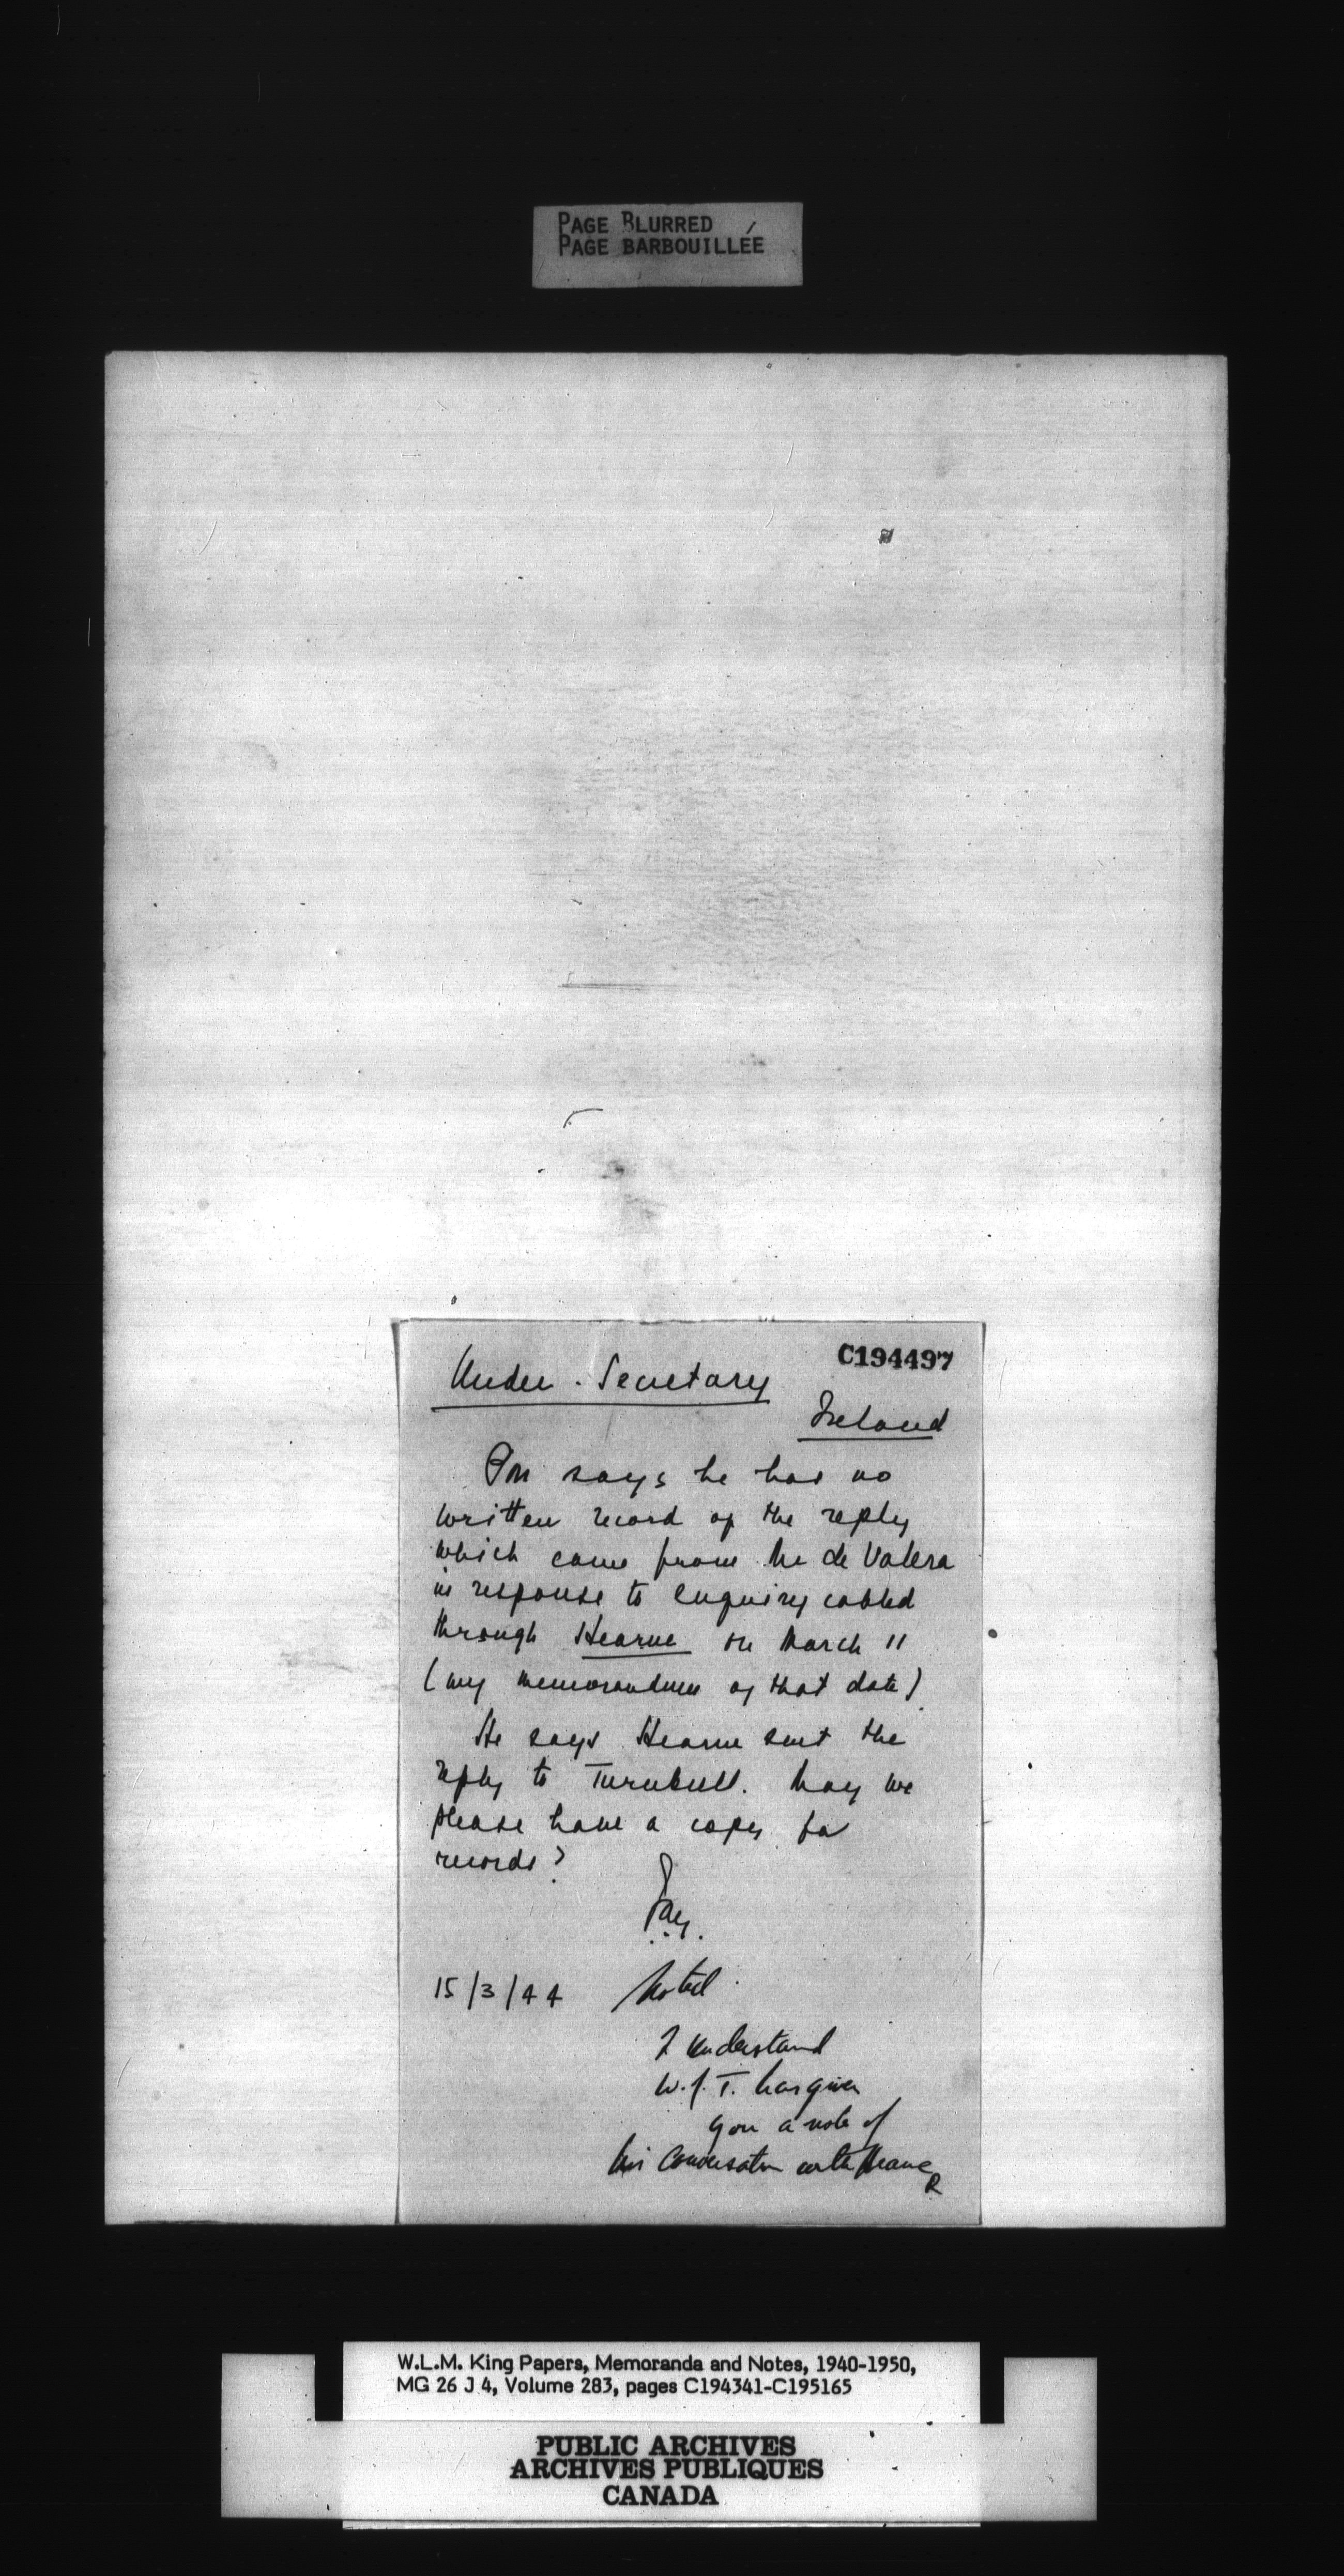 PAGE BLURRED
PAGE BARBOUILLÉE
C194497
Under-Secretary
Ireland
PM says he has no
written record of the reply
which came from Mr de Valera
in response to enquiry cabled
through Hearne on March 11
(my memorandum of that date)
He says Hearne sent the
reply to Turnbull. May we
please have a copy for
records?
15/3/44
Noted
I understand
W.J.T. has given
you a note of
his conversation with Hearne
R
W.L.M. King Papers, Memoranda and Notes, 1940-1950,
MG 26 J 4, Volume 283, pages C194341-C195165
PUBLIC ARCHIVES
ARCHIVES PUBLIQUES
CANADA